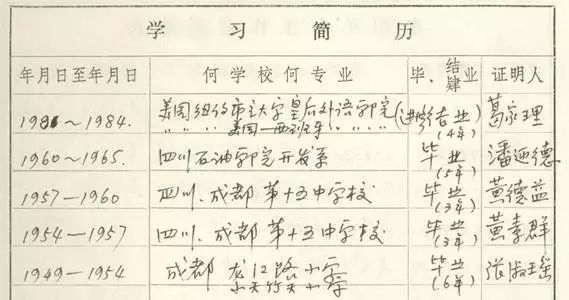 学习简历
年月日至年月日 何学校何专业 毕、结肄业 证明人
1981～1984. 美国纽约市立大学皇后外语学院 (进修)结业 葛家理
〃 〃 〃 美国—西班牙 〃 〃 〃 (4年)
1960～1965. 四川石油学院开发系 毕业 潘迺德
(5年)
1957—1960 四川.成都第十五中学校 毕业 黄德益
(3年)
1954—1957 四川.成都第十五中学校 毕业 黄素群
(3年)
1949—1954 成都龙江路小学 毕业 张淑瑶
小天竺小学 (6年)